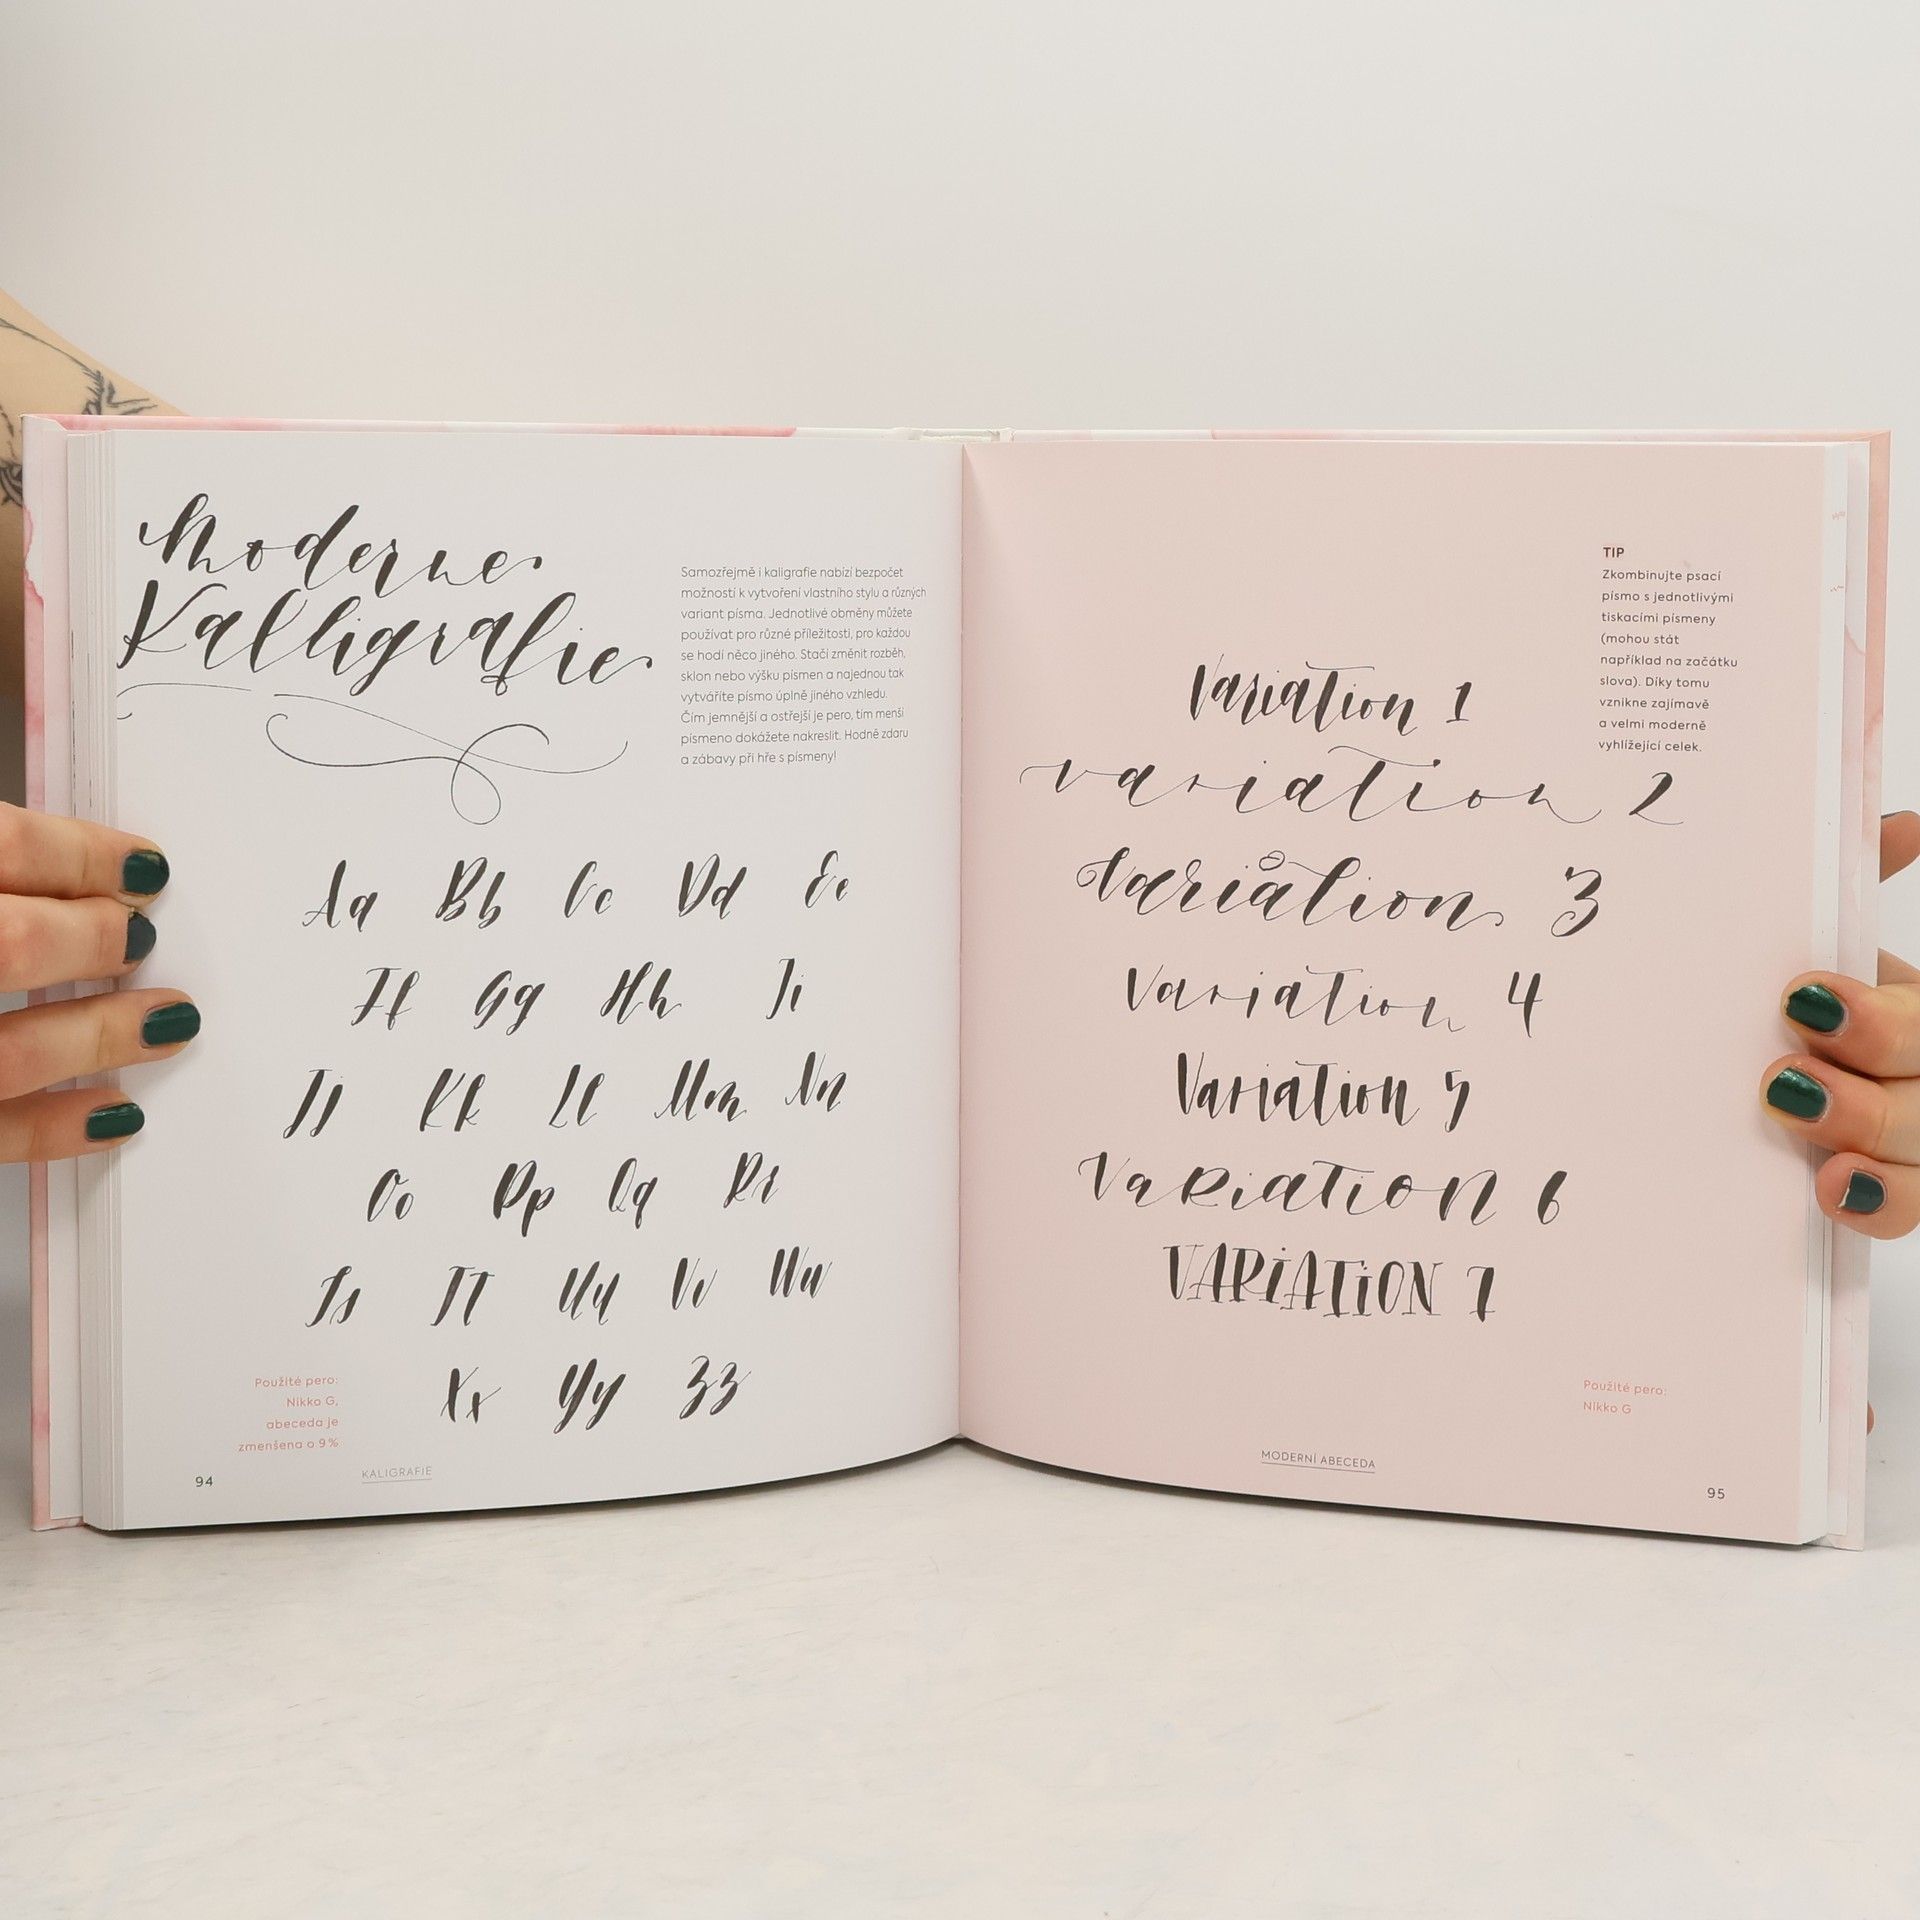 Moderne
Kalligrafie
Samozřejmě i kaligrafie nabízí bezpočet
možností k vytvoření vlastního stylu a různých
variant písma. Jednotlivé obměny můžete
používat pro různé příležitosti, pro každou
se hodí něco jiného. Stačí změnit rozběh,
sklon nebo výšku písmen a najednou tak
vytváříte písmo úplně jiného vzhledu.
Čím jemnější a ostřejší je pero, tím menší
písmeno dokážete nakreslit. Hodně zdaru
a zábavy při hře s písmeny!
Aa Bb Cc Dd Ee
Ff Gg Hh Ii
Jj Kk Ll Mm Nn
Oo Pp Qq Rr
Ss Tt Uu Vv Ww
Xx Yy Zz
Použité pero:
Nikko G,
abeceda je
zmenšena o 9 %
94
KALIGRAFIE
TIP
Zkombinujte psací
písmo s jednotlivými
tiskacími písmeny
(mohou stát
například na začátku
slova). Díky tomu
vznikne zajímavě
a velmi moderně
vyhlížející celek.
Variation 1
variation 2
Variation 3
Variation 4
Variation 5
VaRiation 6
VARIATION 7
Použité pero:
Nikko G
MODERNÍ ABECEDA
95